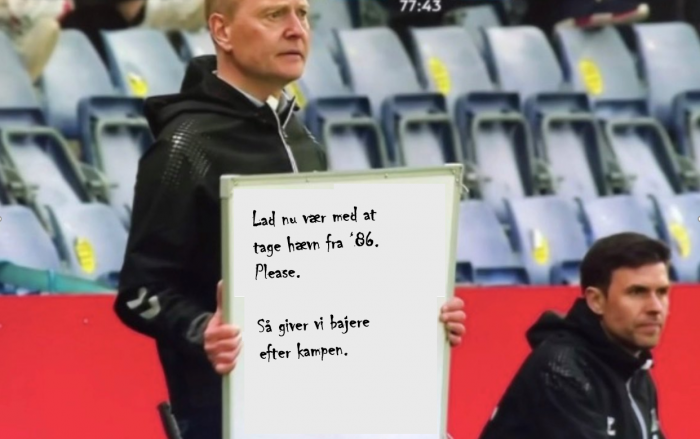 77:43
Lad nu vær med at
tage hævn fra '86.
Please.
Så giver vi bajere
efter kampen.